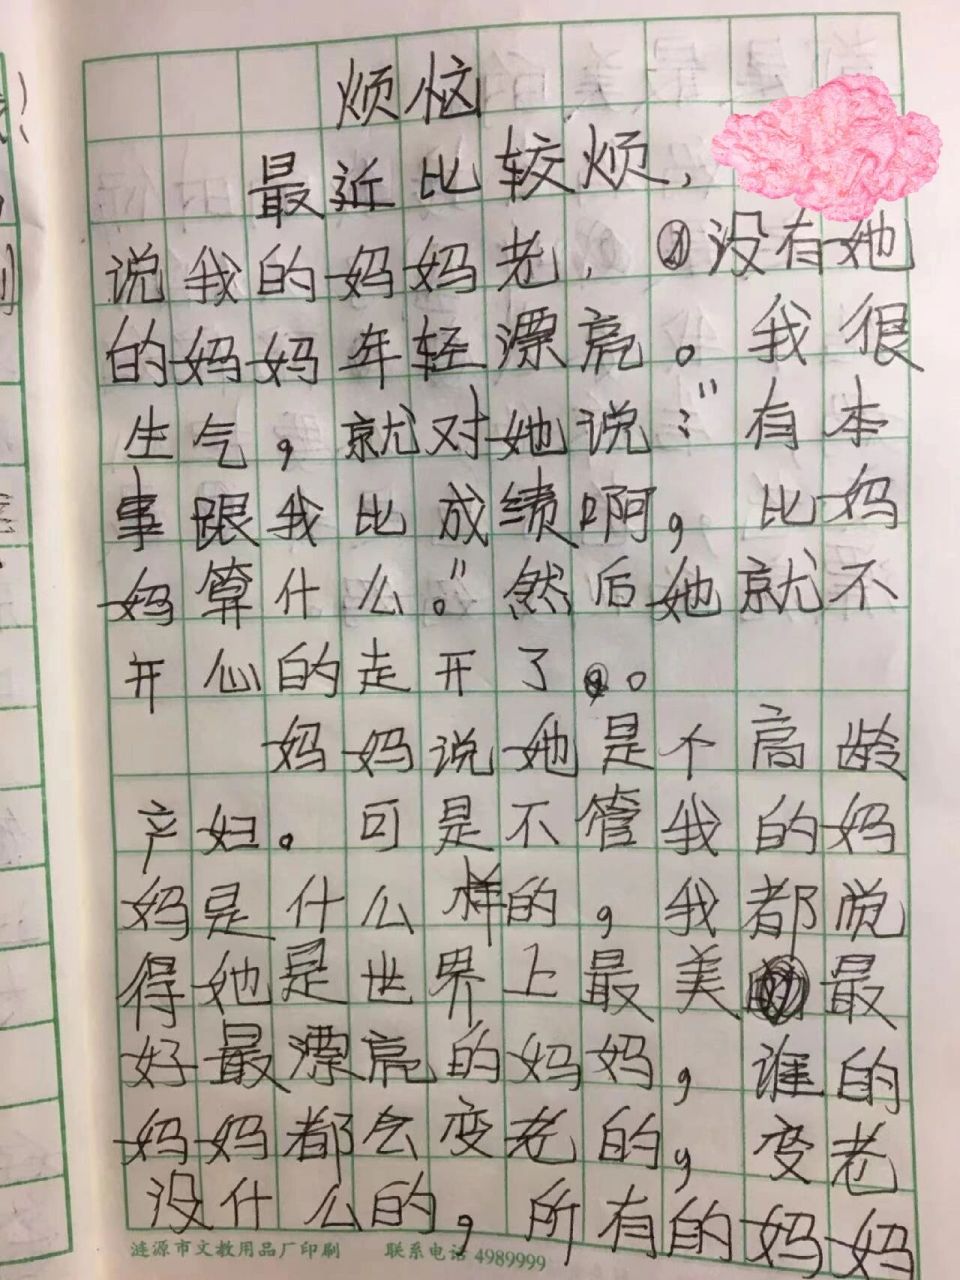 烦恼
最近比较烦，
说我的妈妈老，没有她
的妈妈年轻漂亮。我很
生气，就对她说：“有本
事跟我比成绩啊，比妈
妈算什么。”然后她就不
开心的走开了。
妈妈说她是个高龄
产妇。可是不管我的妈
妈是什么样的，我都觉
得她是世界上最美最
好最漂亮的妈妈，谁的
妈妈都会变老的，变老
没什么的，所有的妈妈
涟源市文教用品厂印刷 联系电话 4989999